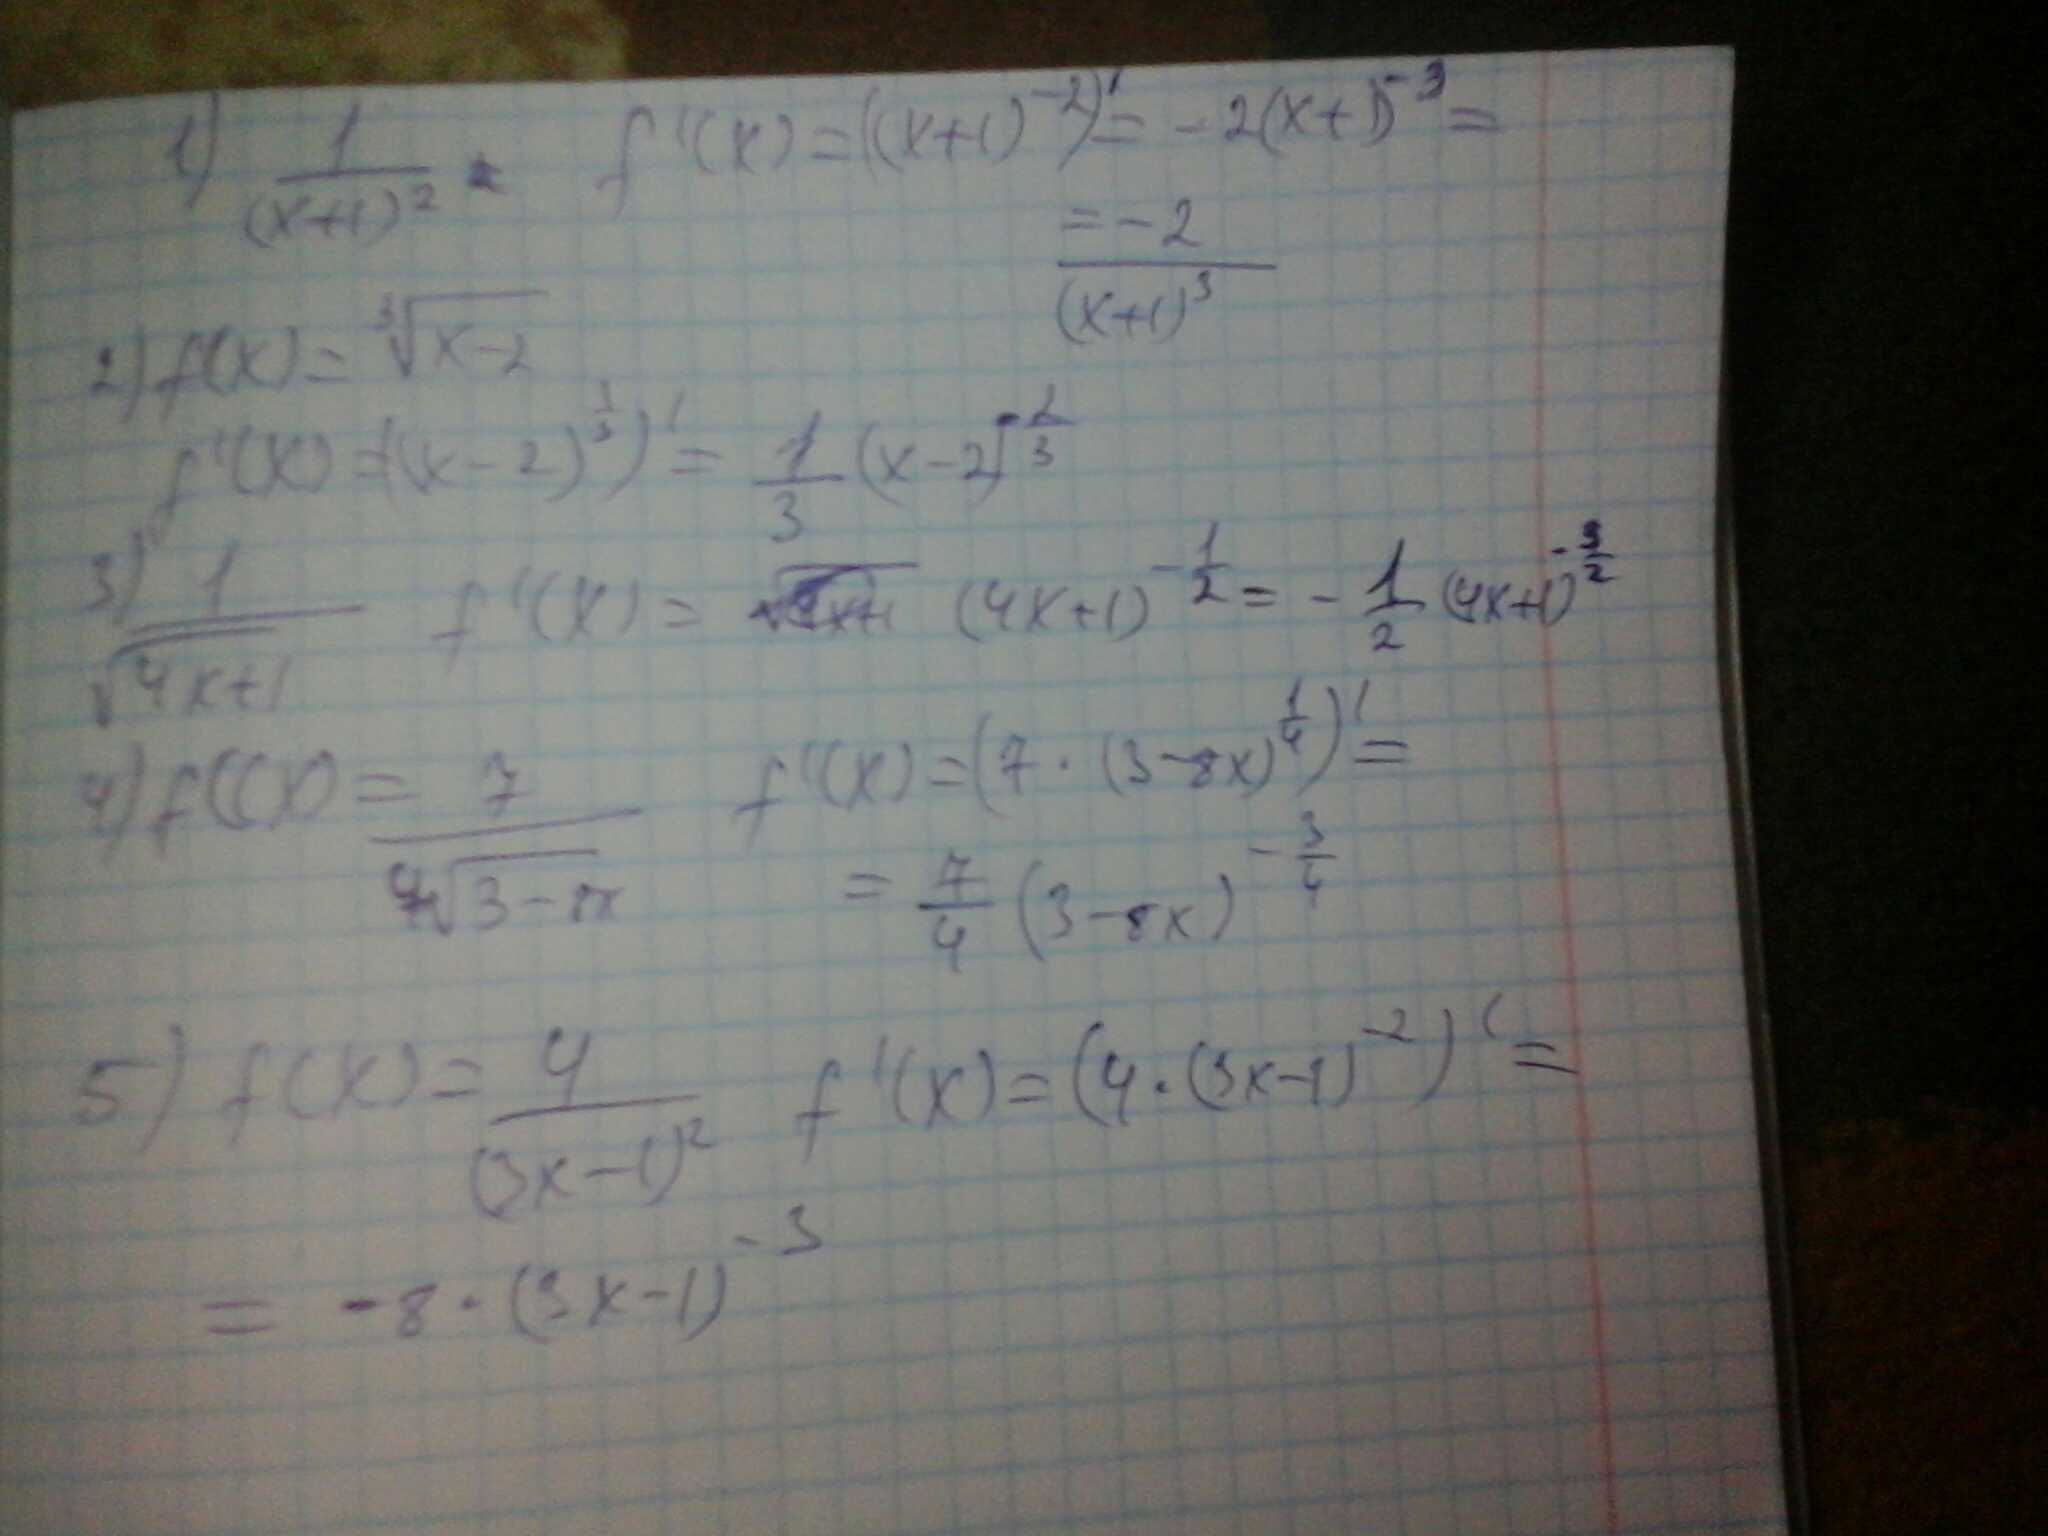 1) 1/(x+1)² f'(x) = ((x+1)⁻²)' = -2(x+1)⁻³ =
= -2/(x+1)³
2) f(x) = ∛(x-2)
f'(x) = ((x-2)^(1/3))' = 1/3 (x-2)^(-2/3)
3) 1/√(4x+1) f'(x) = (4x+1)^(-1/2) = -1/2 (4x+1)^(-3/2)
4) f(x) = 7/⁴√(3-8x) f'(x) = (7·(3-8x)^(1/4))' =
= 7/4 (3-8x)^(-3/4)
5) f(x) = 4/(3x-1)² f'(x) = (4·(3x-1)⁻²)' =
= -8·(3x-1)⁻³